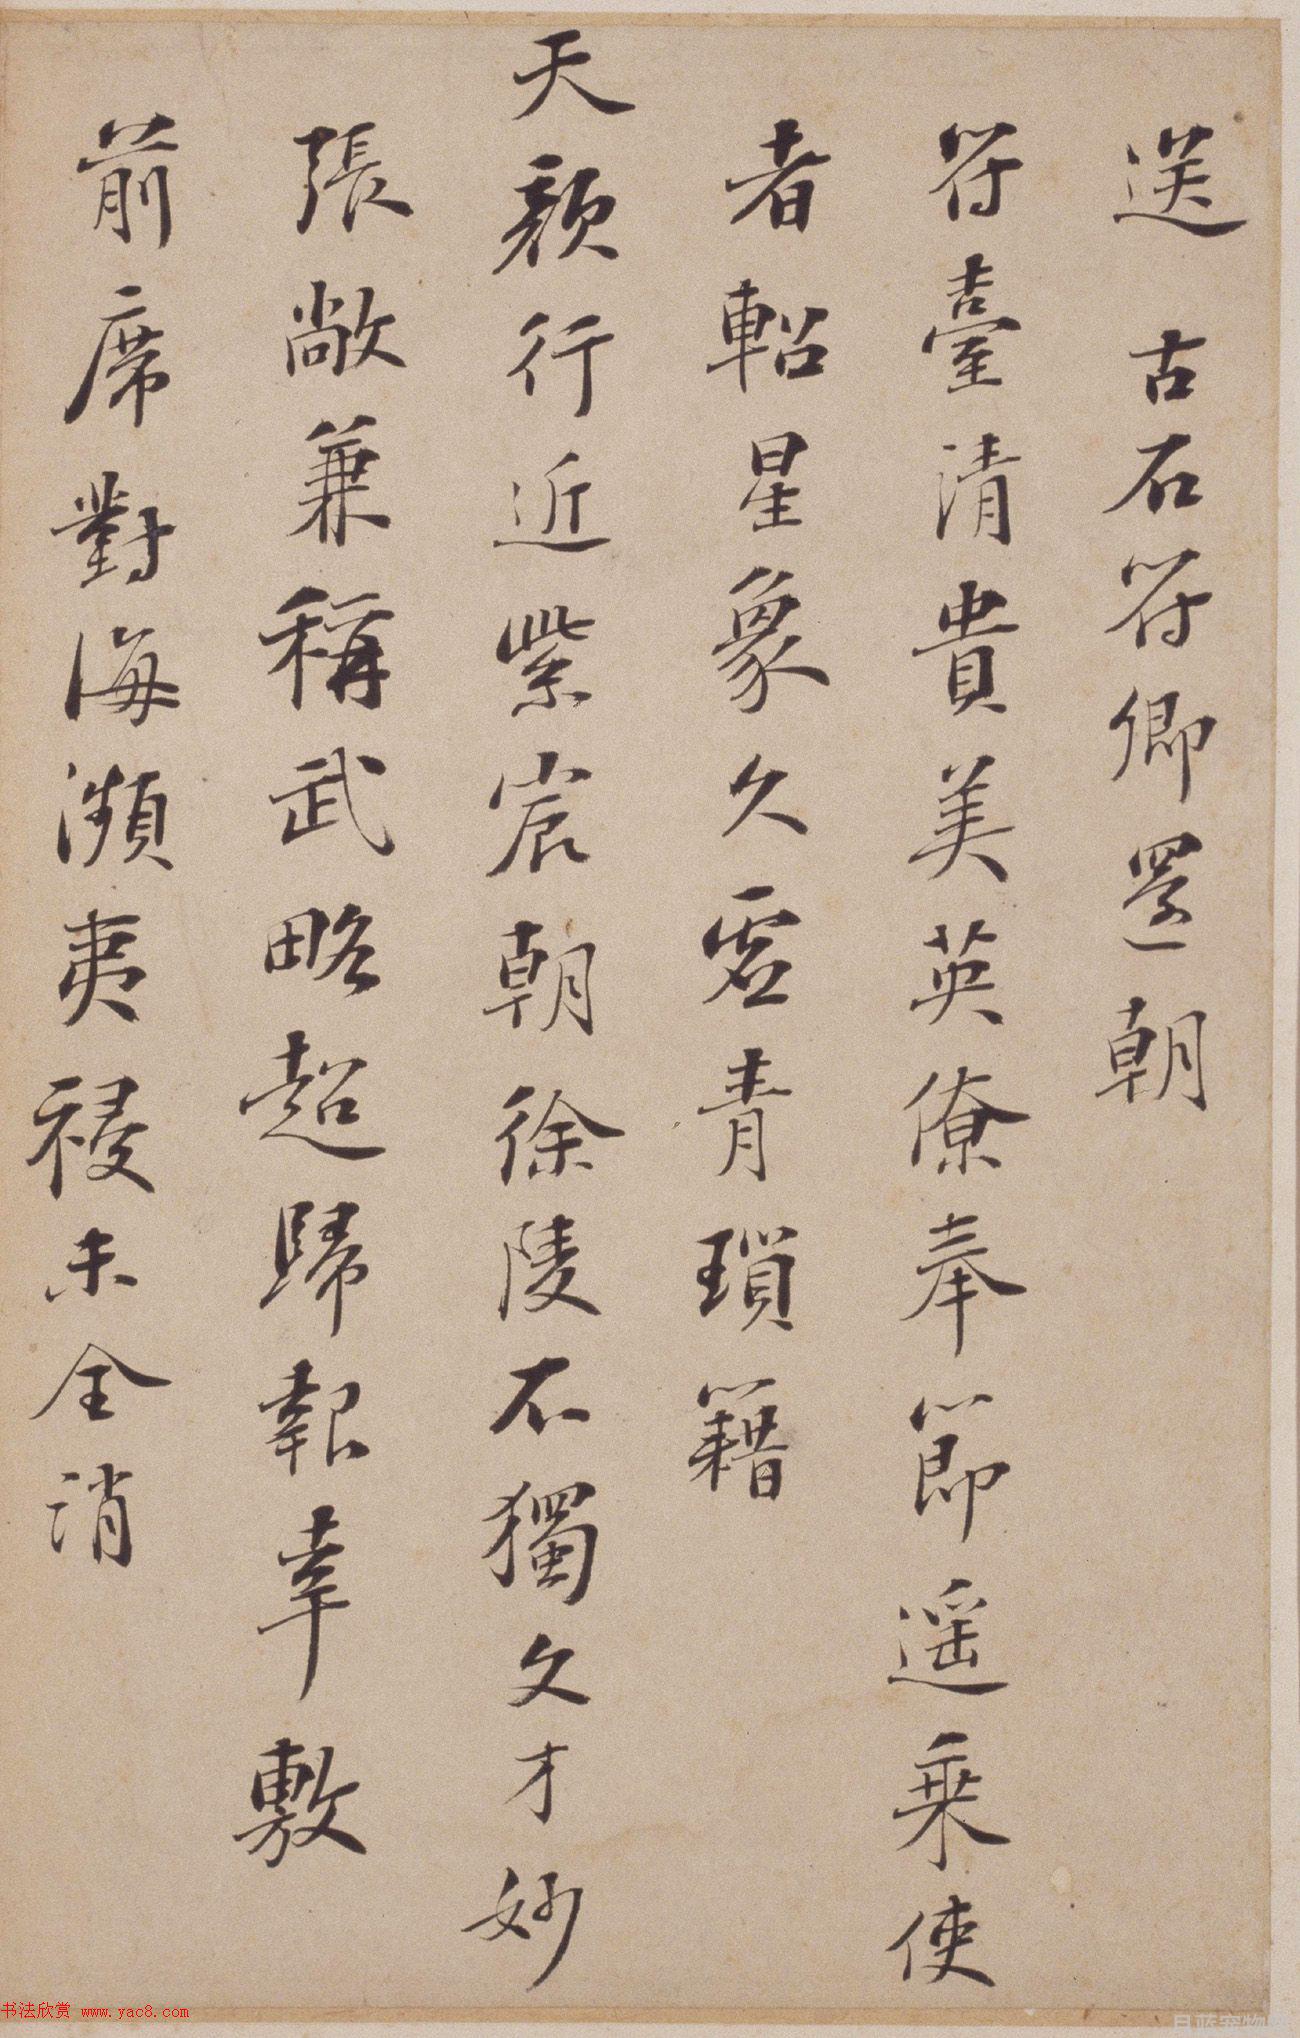 送 古石符卿還朝
符臺清貴美英僚奉節遥乘使
者軺星象久虚青瑣籍
天顔行近紫宸朝徐陵不獨文才妙
張敞兼稱武略超歸報幸敷
前席對海濒夷祲未全消
书法欣赏 www.yac8.com